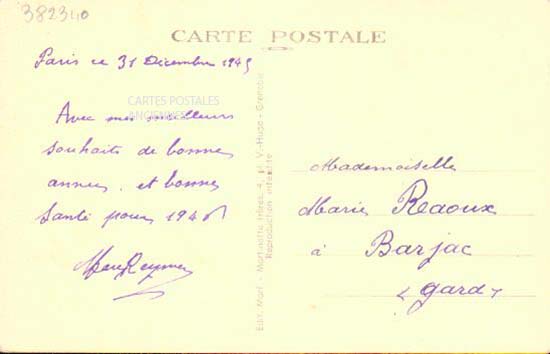 382340
CARTE POSTALE
Paris ce 31 Décembre 1945
CARTES POSTALES
ANCIENNES
Avec mes meilleurs
souhaits de bonne
année et bonne
Santé pour 1946
Mademoiselle
Marie Reaoux
à
Barjac
(Gard)
Edit. Mart - Martinotto frères, 4, r. V.-Hugo - Grenoble
Reproduction interdite